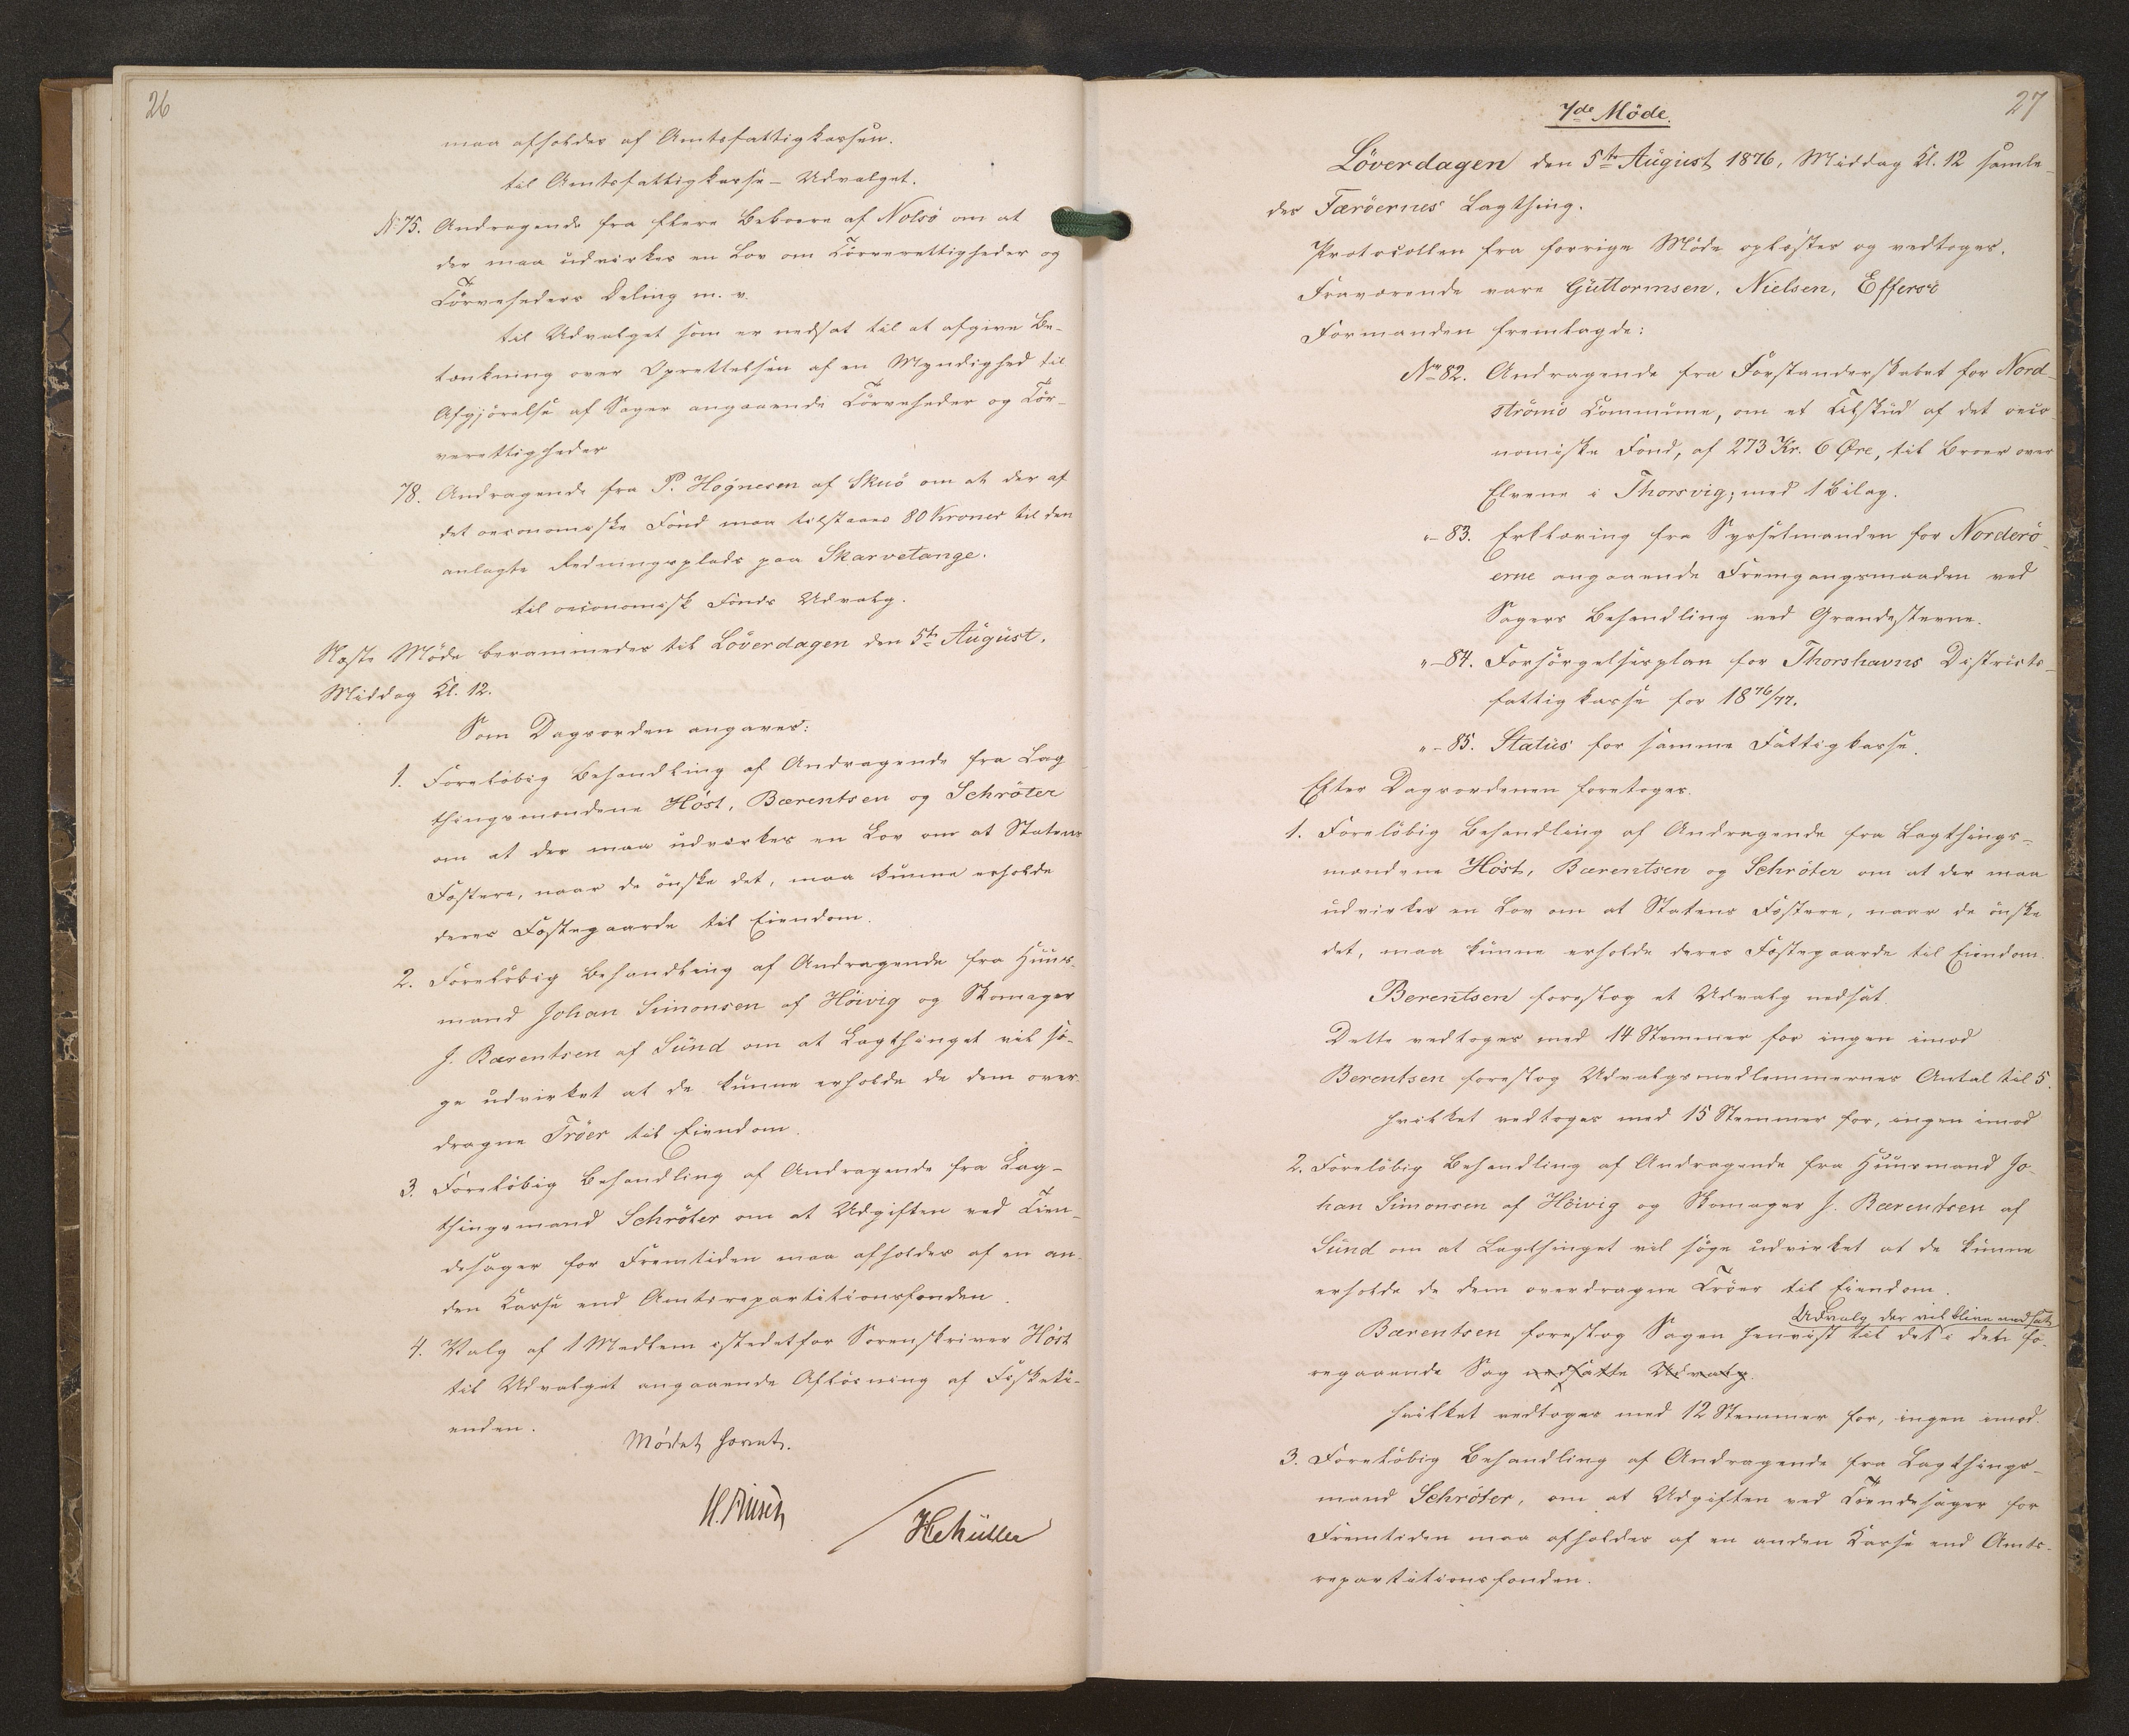 26
maa afholdes af Amtsfattigkassen.
til Amtsfattigkasse-Udvalget.
No 75. Andragende fra flere Beboere af Nolsö om at
der maa udvirkes en Lov om Törverettigheder og
Törveheders Deling m. v.
til Udvalget som er nedsat til at afgive Be-
tænkning over Oprettelsen af en Myndighed til
Afgjörelse af Sager angaaende Törveheder og Tör-
verettigheder
78. Andragende fra P. Hognesen af Skuö om at der af
det oeconomiske Fond maa tilstaaes 80 Kroner til den
anlagte Redningsplads paa Skarvetange.
til oeconomisk Fonds Udvalg.
Næste Möde berammedes til Löverdagen den 5te August.
Middag Kl. 12.
Som Dagsorden angaves:
1. Forelöbig Behandling af Andragende fra Lag
thingsmændene Höst, Bærentsen og Schröter
om at der maa udvirkes en Lov om at Statens
Fæstere, naar de önske det, maa kunne erholde
deres Fæstegaarde til Eiendom.
2. Forelöbig Behandling af Andragende fra Huus-
mand Johan Simonsen af Höivig og Skomager
J. Bærentsen af Sund om at Lagthinget vil sö-
ge udvirket at de kunne erholde de dem over
dragne Tröer til Eiendom.
3. Forelöbig Behandling af Andragende fra Lag-
thingsmand Schröter om at Udgiften ved Tien-
desager for Fremtiden maa afholdes af en an-
den Kasse end Amtsrepartitionsfonden.
4. Valg af 1 Medlem istedetfor Sorenskriver Höst
til Udvalget angaaende Aflösning af Fisketi-
enden.
Mödet hævet.
HMüller
27
7de Möde.
Löverdagen den 5te August 1876, Middag Kl. 12 samle-
des Færöernes Lagthing.
Protocollen fra forrige Möde oplæstes og vedtoges.
Fraværende vare Guttormsen, Nielsen, Effersö
Formanden fremlagde:
No 82. Andragende fra Forstanderskabet for Nord-
strömö Commune, om et Tilskud af det oeco-
nomiske Fond, af 273 Kr. 6 Øre, til Broer over
Elvene i Thorsvig; med 1 Bilag.
"-83. Erklæring fra Sysselmanden for Norderö-
erne angaaende Fremgangsmaaden ved
Sagers Behandling ved Grandestevne.
"-84. Forsörgelsesplan for Thorshavns Districts-
fattigkasse for 1876/77.
"-85. Status for samme Fattigkasse.
Efter Dagsordenen foretoges.
1. Forelöbig Behandling af Andragende fra Lagthings-
mændene Höst, Bærentsen og Schröter om at der maa
udvirkes en Lov om at Statens Fæstere, naar de önske
det, maa kunne erholde deres Fæstegaarde til Eiendom.
Berentsen foreslog et Udvalg nedsat.
Dette vedtoges med 14 Stemmer for ingen imod
Berentsen foreslog Udvalgsmedlemmernes Antal til 5.
hvilket vedtoges med 15 Stemmer for, ingen imod
2. Forelöbig Behandling af Andragende fra Huusmand Jo-
han Simonsen af Höivig og Skomager J. Bærentsen af
Sund om at Lagthinget vil söge udvirket at de kunne
erholde de dem overdragne Tröer til Eiendom.
Udvalg der vil blive nedsat
Bærentsen foreslog Sagen henvist til det i den fo-
regaaende Sag nedsatte Udvalg.
hvilket vedtoges med 12 Stemmer for, ingen imod.
3. Forelöbig Behandling af Andragende fra Lagthings-
mand Schröter, om at Udgiften ved Tiendesager for
Fremtiden maa afholdes af en anden Kasse end Amts-
repartitionsfonden.